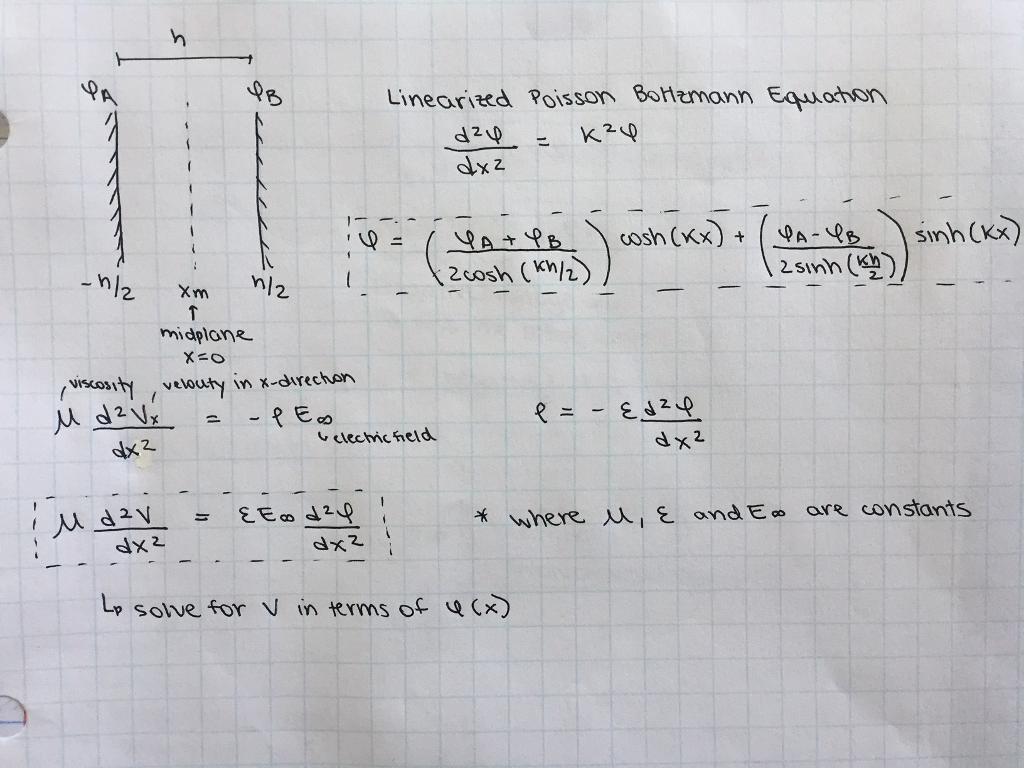 h
φA φB
-h/2 xm h/2
↑
midplane
x=0
Linearized Poisson Boltzmann Equation
d²φ/dx² = K²φ
φ = ( (φA + φB) / (2cosh (Kh/2)) ) cosh(Kx) + ( (φA - φB) / (2 sinh (Kh/2)) ) sinh(Kx)
viscosity , velocity in x-direction
μ d²Vx/dx² = - ρ E∞
↳ electric field
ρ = - ε d²φ/dx²
μ d²V/dx² = ε E∞ d²φ/dx²
* where μ, ε and E∞ are constants
↳ solve for V in terms of φ(x)